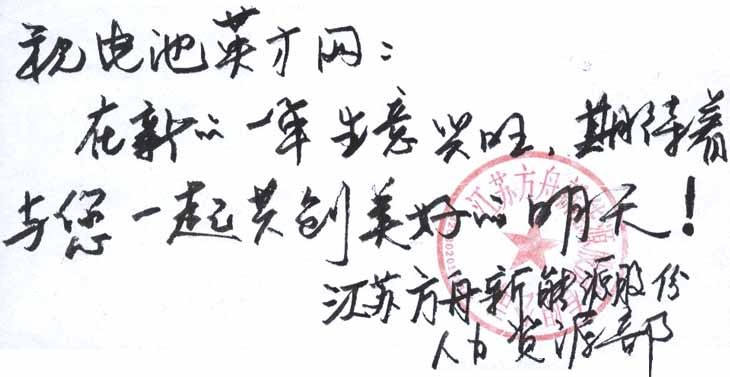 祝电池英才网：
在新的一年生意兴旺，期待着
与您一起共创美好的明天！
江苏方舟新能源股份
人力资源部
江苏方舟新能源股份有限公司